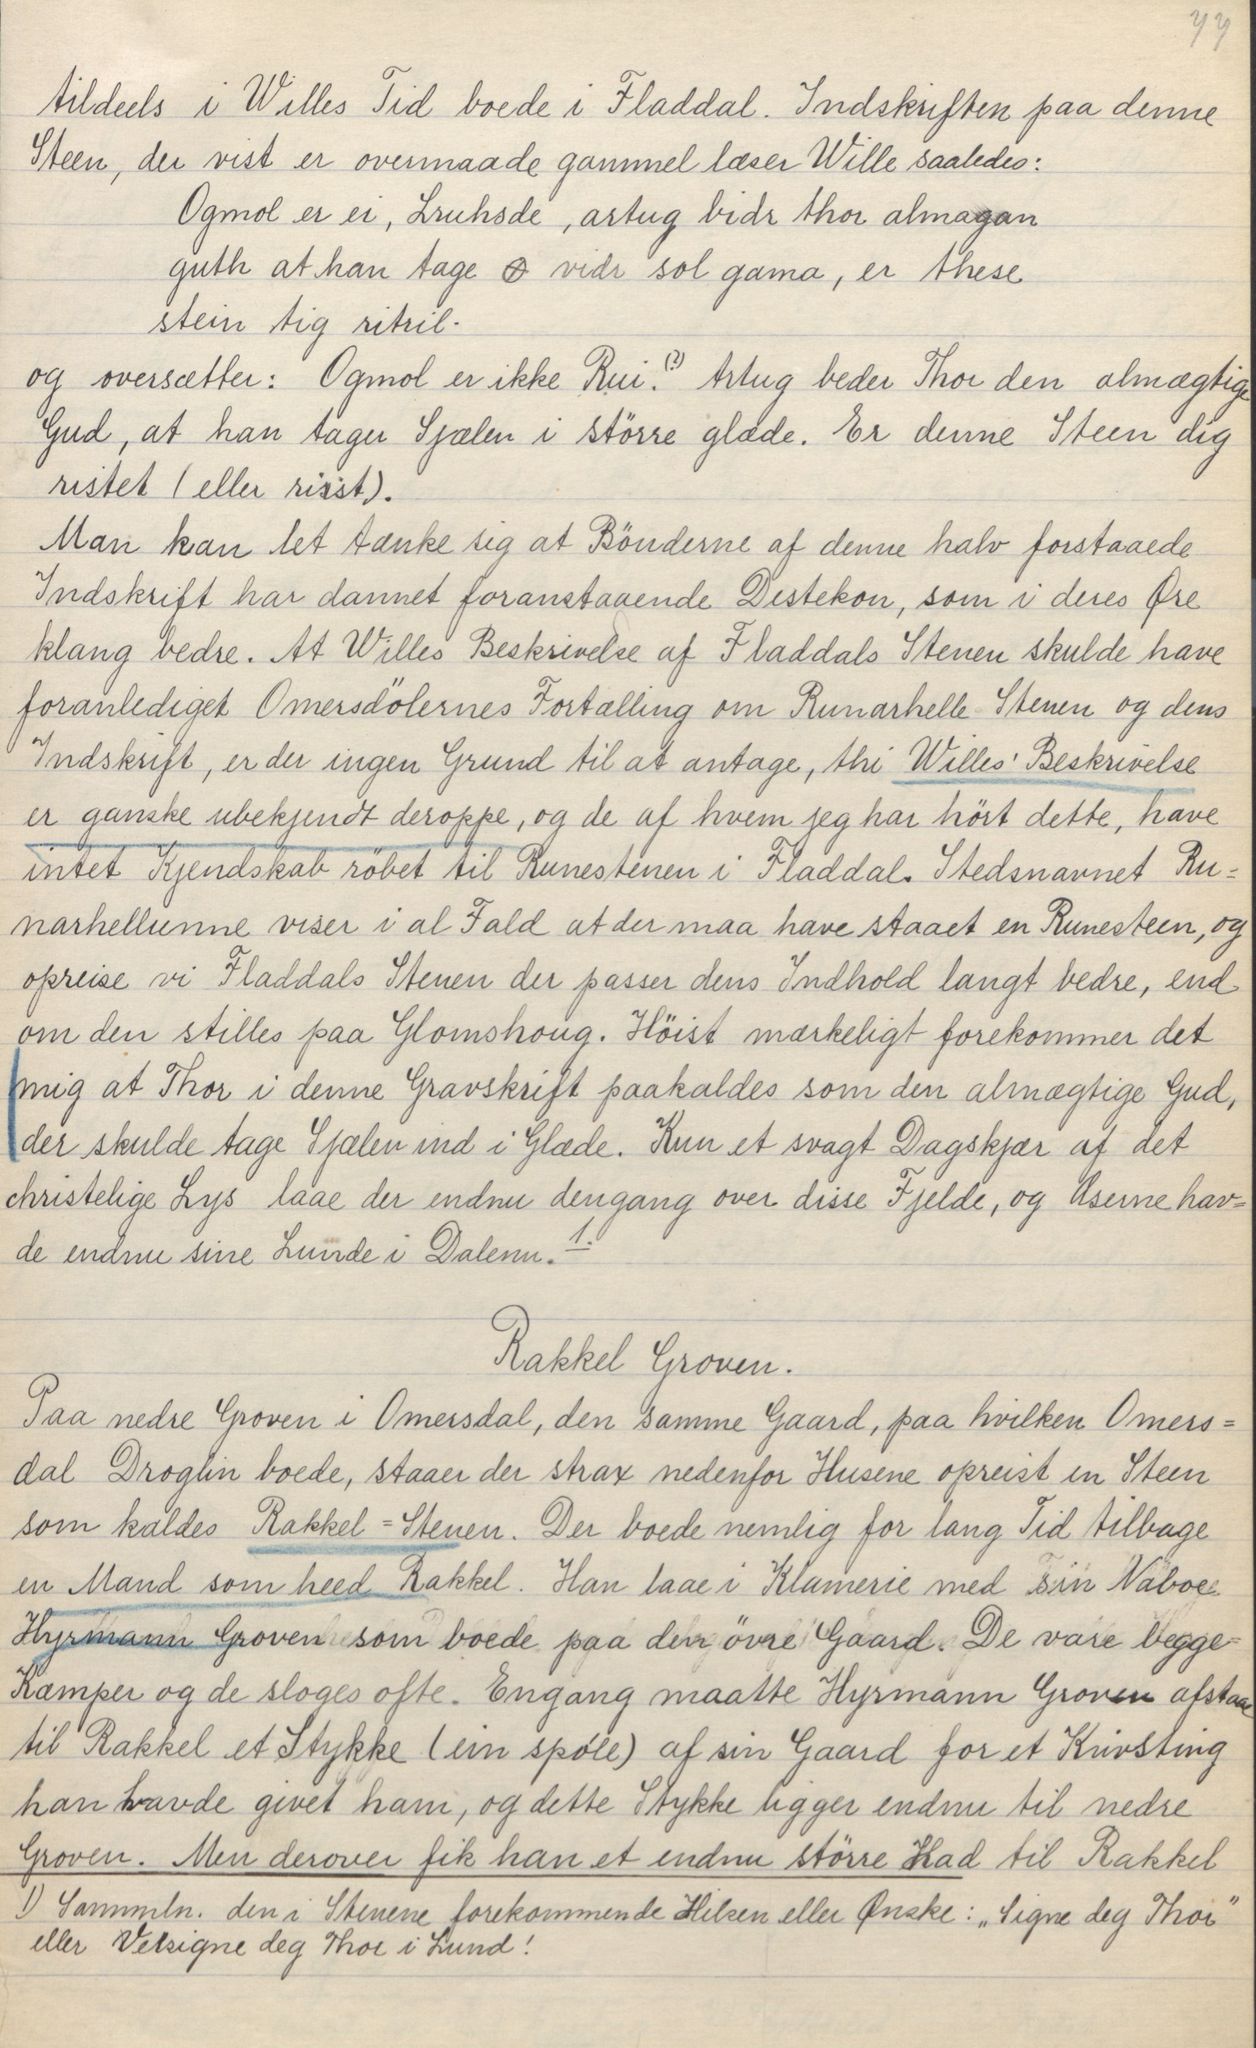 77
tildeels i Willes Tid boede i Fladdal. Indskriften paa denne
Steen, der vist er overmaade gammel læser Wille saaledes:
Ogmol er ei, Lruhsde, artug bidr thor almagan
guth at han tage vidr sol gama, er these
stein tig ritril.
og oversætter: Ogmol er ikke Rui.(?) Artug beder Thor den almægtige
Gud, at han tager Sjælen i større glæde. Er denne Steen dig
ristet (eller risst).
Man kan let tænke sig at Bönderne af denne halv forstaaede
Indskrift har dannet foranstaaende Destekon, som i deres Øre
klang bedre. At Willes Beskrivelse af Fladdals Stenen skulde have
foranlediget Omersdölernes Fortælling om Runarhelle Stenen og dens
Indskrift, er der ingen Grund til at antage, thi Willes' Beskrivelse
er ganske ubekjendt deroppe, og de af hvem jeg har hört dette, have
intet Kjendskab röbet til Runestenen i Fladdal. Stedsnavnet Ru=
narhellunne viser i al Fald at der maa have staaet en Runesteen, og
opreise vi Fladdals Stenen der passer dens Indhold langt bedre, end
om den stilles paa Glomshoug. Höist mærkeligt forekommer det
mig at Thor i denne Gravskrift paakaldes som den almægtige Gud,
der skulde tage Sjælen ind i Glæde. Kun et svagt Dagskjær af det
christelige Lys laae der endnu dengang over disse Fjelde, og Aserne hav=
de endnu sine Lunde i Dalenn. 1.
Rakkel Groven.
Paa nedre Groven i Omersdal, den samme Gaard, paa hvilken Omers=
dal Droglin boede, staaer der strax nedenfor Husene opreist en Steen
som kaldes Rakkel=Stenen. Der boede nemlig for lang Tid tilbage
en Mand som heed Rakkel. Han laae i Klamerie med sin Naboe
Hyrmann Groven som boede paa den övre Gaard. De vare begge
Kæmper og de sloges ofte. Engang maatte Hyrmann Groven afstaae
til Rakkel et Stykke (ein spole) af sin Gaard for et Knivsting
han havde givet ham, og dette Stykke ligger endnu til nedre
Groven. Men derover fik han et endnu större Had til Rakkel
1) Sammeln. den i Stenene forekommende Hilsen eller Ønske: „Signe deg Thor"
eller Velsigne deg Thor i Lund!